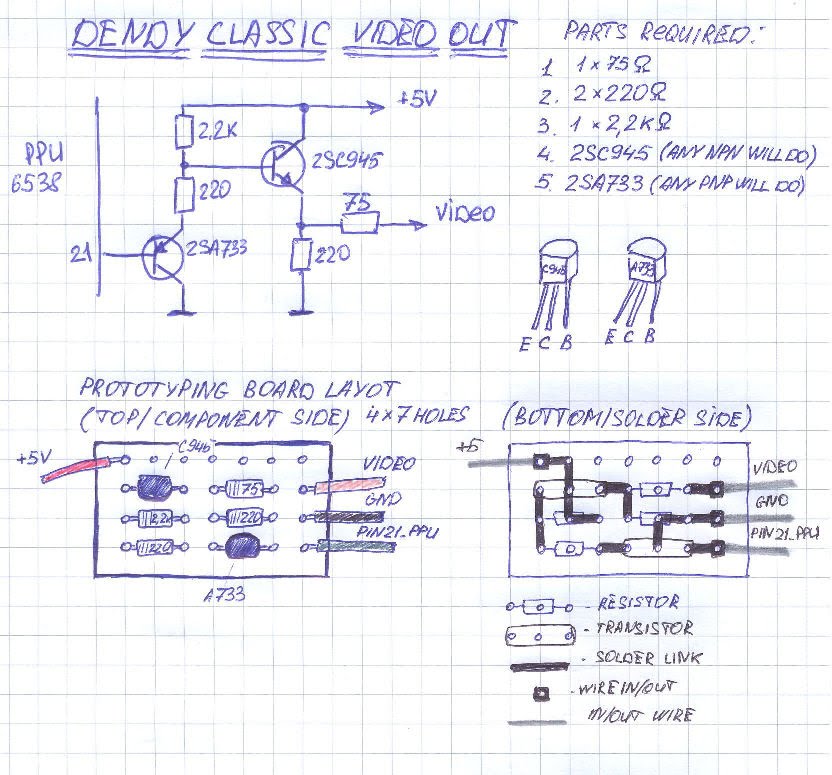 DENDY CLASSIC VIDEO OUT
PARTS REQUIRED:
1 1×75Ω
2. 2×220Ω
3. 1×2,2KΩ
4. 2SC945 (ANY NPN WILL DO)
5. 2SA733 (ANY PNP WILL DO)
+5V
2,2K
PPU
6538
2SC945
220
75
VIDEO
21
2SA733
220
C945
A733
E C B
E C B
PROTOTYPING BOARD LAYOT
(TOP/COMPONENT SIDE) 4×7 HOLES
(BOTTOM/SOLDER SIDE)
C945
+5V
VIDEO
75
GND
2,2K
220
PIN21_PPU
220
A733
+5
VIDEO
GND
PIN21_PPU
- RESISTOR
- TRANSISTOR
- SOLDER LINK
- WIRE IN/OUT
IN/OUT WIRE